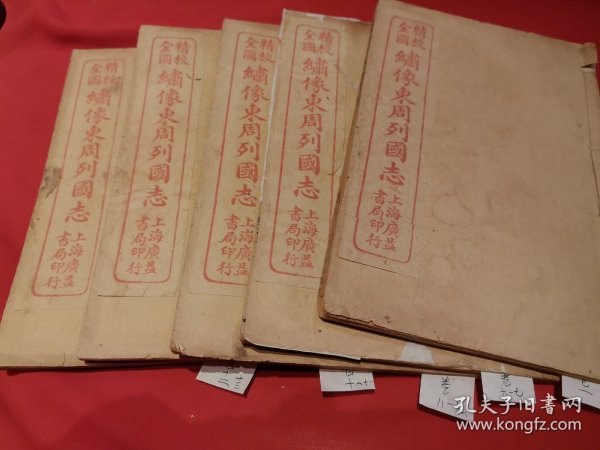 精校
全圖
繡像東周列國志
上海廣益
書局印行
精校
全圖
繡像東周列國志
上海廣益
書局印行
精校
全圖
繡像東周列國志
上海廣益
書局印行
精校
全圖
繡像東周列國志
上海廣益
書局印行
精校
全圖
繡像東周列國志
上海廣益
書局印行
孔夫子旧书网
www.kongfz.com